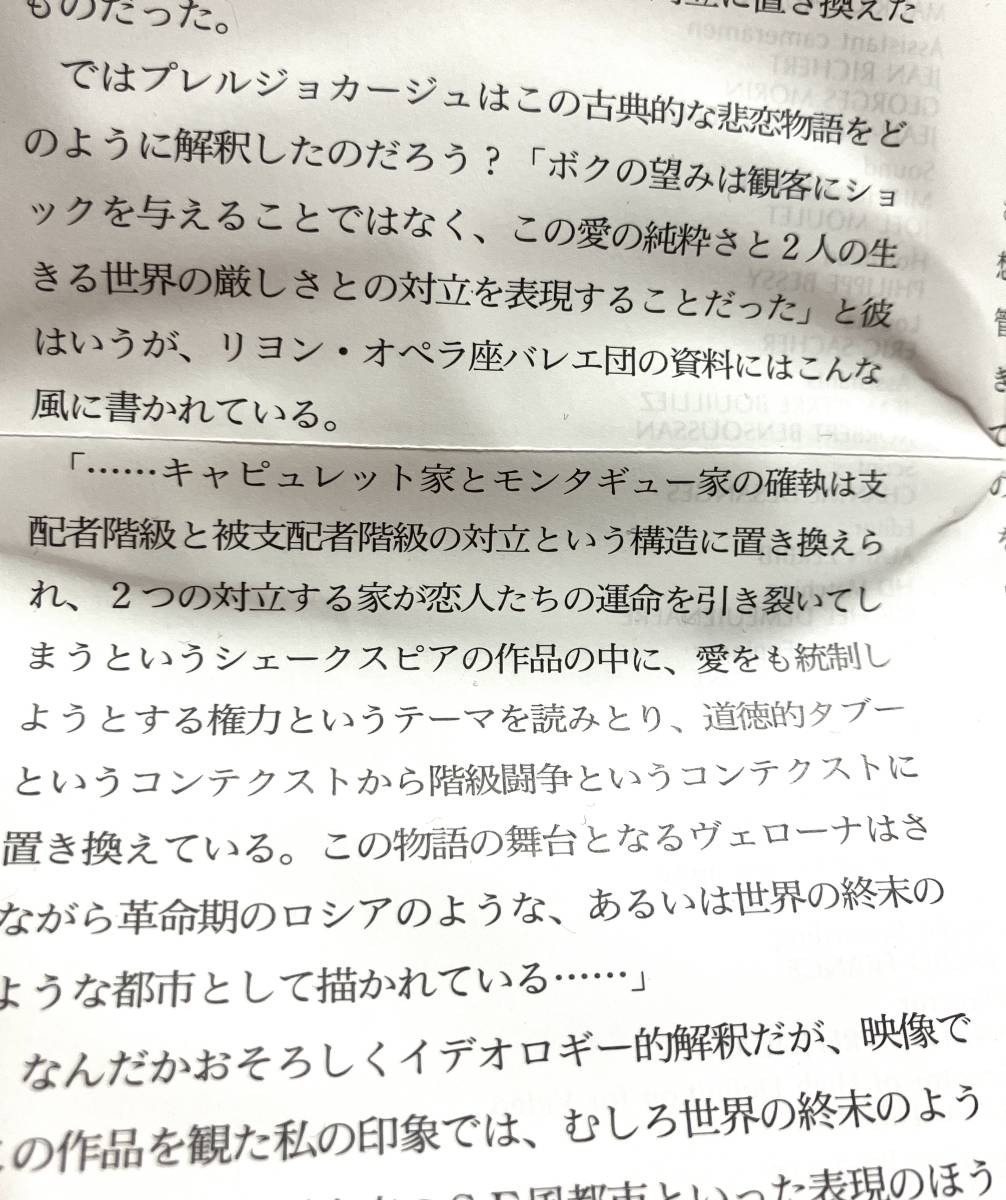 ものだった。
立に置き換えた
ではプレルジョカージュはこの古典的な悲恋物語をど
のように解釈したのだろう?「ボクの望みは観客にショ
ックを与えることではなく、この愛の純粋さと2人の生
きる世界の厳しさとの対立を表現することだった」と彼
はいうが、リヨン・オペラ座バレエ団の資料にはこんな
風に書かれている。
「……キャピュレット家とモンタギュー家の確執は支
配者階級と被支配者階級の対立という構造に置き換えら
れ、2つの対立する家が恋人たちの運命を引き裂いてし
まうというシェークスピアの作品の中に、愛をも統制し
ようとする権力というテーマを読みとり、道徳的タブー
というコンテクストから階級闘争というコンテクストに
置き換えている。この物語の舞台となるヴェローナはさ
ながら革命期のロシアのような、あるいは世界の終末の
ような都市として描かれている……」
なんだかおそろしくイデオロギー的解釈だが、映像で
の作品を観た私の印象では、むしろ世界の終末のよう
都市といった表現のほう